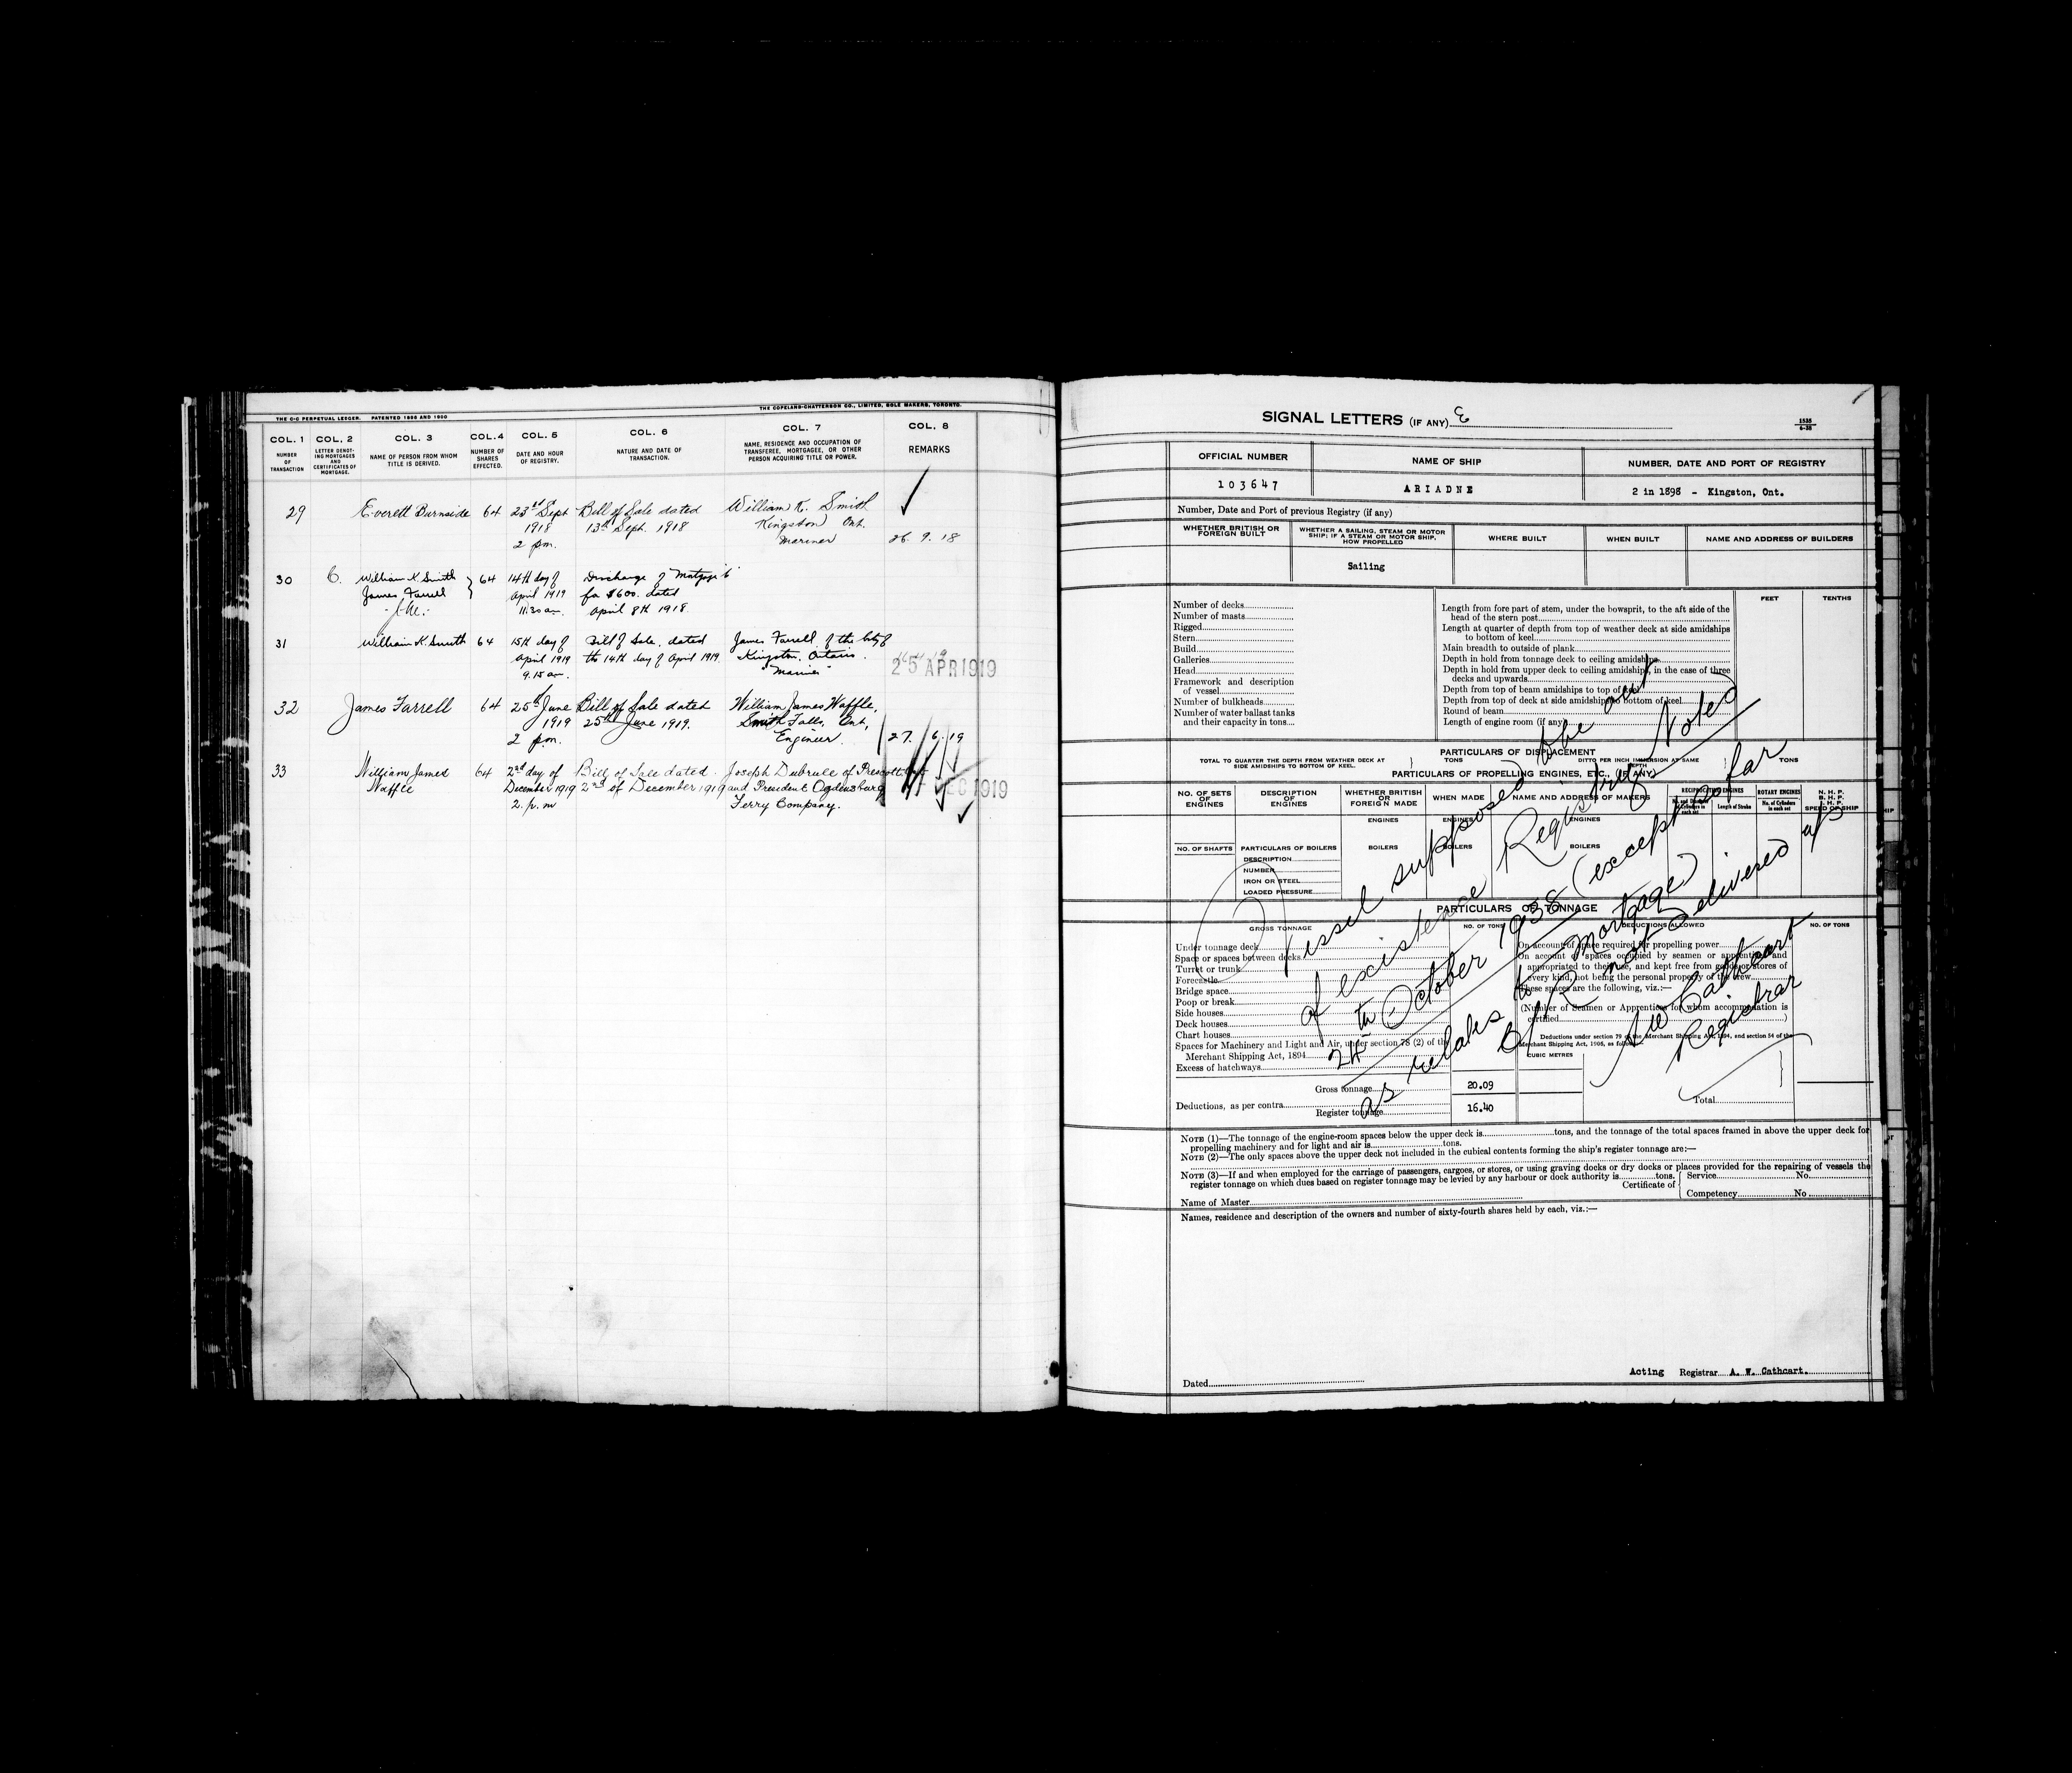 THE C-C PERPETUAL LEDGER. PATENTED 1898 AND 1890
THE COPELAND-CHATTERSON CO., LIMITED, SOLE MAKERS, TORONTO.
COL. 1
NUMBER
OF
TRANSACTION
COL. 2
LETTER DENOT-
ING MORTGAGES
AND
CERTIFICATES OF
MORTGAGE.
COL. 3
NAME OF PERSON FROM WHOM
TITLE IS DERIVED.
COL. 4
NUMBER OF
SHARES
EFFECTED.
COL. 5
DATE AND HOUR
OF REGISTRY.
COL. 6
NATURE AND DATE OF
TRANSACTION.
COL. 7
NAME, RESIDENCE AND OCCUPATION OF
TRANSFEREE, MORTGAGEE, OR OTHER
PERSON ACQUIRING TITLE OR POWER.
COL. 8
REMARKS
29 Everett Burnside 64 23rd Sept Bill of Sale dated William K. Smith
1918 13th Sept. 1918 Kingston Ont.
2 pm. Mariner 26. 9. 18
30 C. William K Smith } 64 14th day of Discharge of Mortgage "C"
James Farrell April 1919 for $600. dated
11.30 am. April 8th 1918.
31 William K. Smith 64 15th day of Bill of Sale. dated James Farrell of the City of
April 1919 the 14th day of April 1919. Kingston. Ontario.
9.15 am. "Mariner"
25 APR 1919
32 James Farrell 64 25th June Bill of Sale dated William James Waffle,
1919 25th June 1919. Smith Falls, Ont,
2 pm. Engineer. 27. 6. 19
33 William James 64 2nd day of Bill of Sale dated Joseph Dubrule of Prescott Ont
Waffle December 1919 2nd of December 1919 and President Ogdensburg
2. p. m Ferry Company.
DEC 1919
SIGNAL LETTERS (IF ANY) E
1535
6-38
OFFICIAL NUMBER
NAME OF SHIP
NUMBER, DATE AND PORT OF REGISTRY
103647
ARIADNE
2 in 1898 - Kingston, Ont.
Number, Date and Port of previous Registry (if any)
WHETHER BRITISH OR
FOREIGN BUILT
WHETHER A SAILING, STEAM OR MOTOR
SHIP; IF A STEAM OR MOTOR SHIP,
HOW PROPELLED
WHERE BUILT
WHEN BUILT
NAME AND ADDRESS OF BUILDERS
Sailing
Number of decks
Number of masts
Rigged
Stern
Build
Galleries
Head
Framework and description
of vessel
Number of bulkheads
Number of water ballast tanks
and their capacity in tons
FEET
TENTHS
Length from fore part of stem, under the bowsprit, to the aft side of the
head of the stern post
Length at quarter of depth from top of weather deck at side amidships
to bottom of keel
Main breadth to outside of plank
Depth in hold from tonnage deck to ceiling amidships
Depth in hold from upper deck to ceiling amidships, in the case of three
decks and upwards
Depth from top of beam amidships to top of keel
Depth from top of deck at side amidships to bottom of keel
Round of beam
Length of engine room (if any)
PARTICULARS OF DISPLACEMENT
TOTAL TO QUARTER THE DEPTH FROM WEATHER DECK AT
SIDE AMIDSHIPS TO BOTTOM OF KEEL.
TONS
DITTO PER INCH IMMERSION AT SAME
DEPTH
TONS
PARTICULARS OF PROPELLING ENGINES, ETC., (IF ANY)
NO. OF SETS
OF
ENGINES
DESCRIPTION
OF
ENGINES
WHETHER BRITISH
OR
FOREIGN MADE
WHEN MADE
NAME AND ADDRESS OF MAKERS
RECIPROCATING ENGINES
No. and Diameter
of Cylinders in
each set
Length of Stroke
ROTARY ENGINES
No. of Cylinders
in each set
N. H. P.
B. H. P.
I. H. P.
SPEED OF SHIP
ENGINES
ENGINES
ENGINES
NO. OF SHAFTS
PARTICULARS OF BOILERS
BOILERS
BOILERS
BOILERS
DESCRIPTION
NUMBER
IRON OR STEEL
LOADED PRESSURE
Vessel supposed to be out
of existence Registry Noted
24th October 1938 (except so far
as relates to Mortgage)
B/R not delivered up
AW Cathcart
Registrar
PARTICULARS OF TONNAGE
GROSS TONNAGE
NO. OF TONS
DEDUCTIONS ALLOWED
NO. OF TONS
Under tonnage deck
Space or spaces between decks
Turret or trunk
Forecastle
Bridge space
Poop or break
Side houses
Deck houses
Chart houses
Spaces for Machinery and Light and Air, under section 78 (2) of the
Merchant Shipping Act, 1894
Excess of hatchways
On account of space required for propelling power
On account of spaces occupied by seamen or apprentices and
appropriated to their use, and kept free from goods or stores of
every kind, not being the personal property of the crew
These spaces are the following, viz.:—
(Number of Seamen or Apprentices for whom accommodation is
certified )
Deductions under section 79 of the Merchant Shipping Act, 1894, and section 54 of the
Merchant Shipping Act, 1906, as follows:—
CUBIC METRES
Gross tonnage 20.09
Deductions, as per contra
Register tonnage 16.40
Total
NOTE (1)—The tonnage of the engine-room spaces below the upper deck is tons, and the tonnage of the total spaces framed in above the upper deck for
propelling machinery and for light and air is tons.
NOTE (2)—The only spaces above the upper deck not included in the cubical contents forming the ship's register tonnage are:—
NOTE (3)—If and when employed for the carriage of passengers, cargoes, or stores, or using graving docks or dry docks or places provided for the repairing of vessels the
register tonnage on which dues based on register tonnage may be levied by any harbour or dock authority is tons.
Certificate of { Service No.
Competency No
Name of Master
Names, residence and description of the owners and number of sixty-fourth shares held by each, viz.:—
Acting Registrar A. W. Cathcart.
Dated